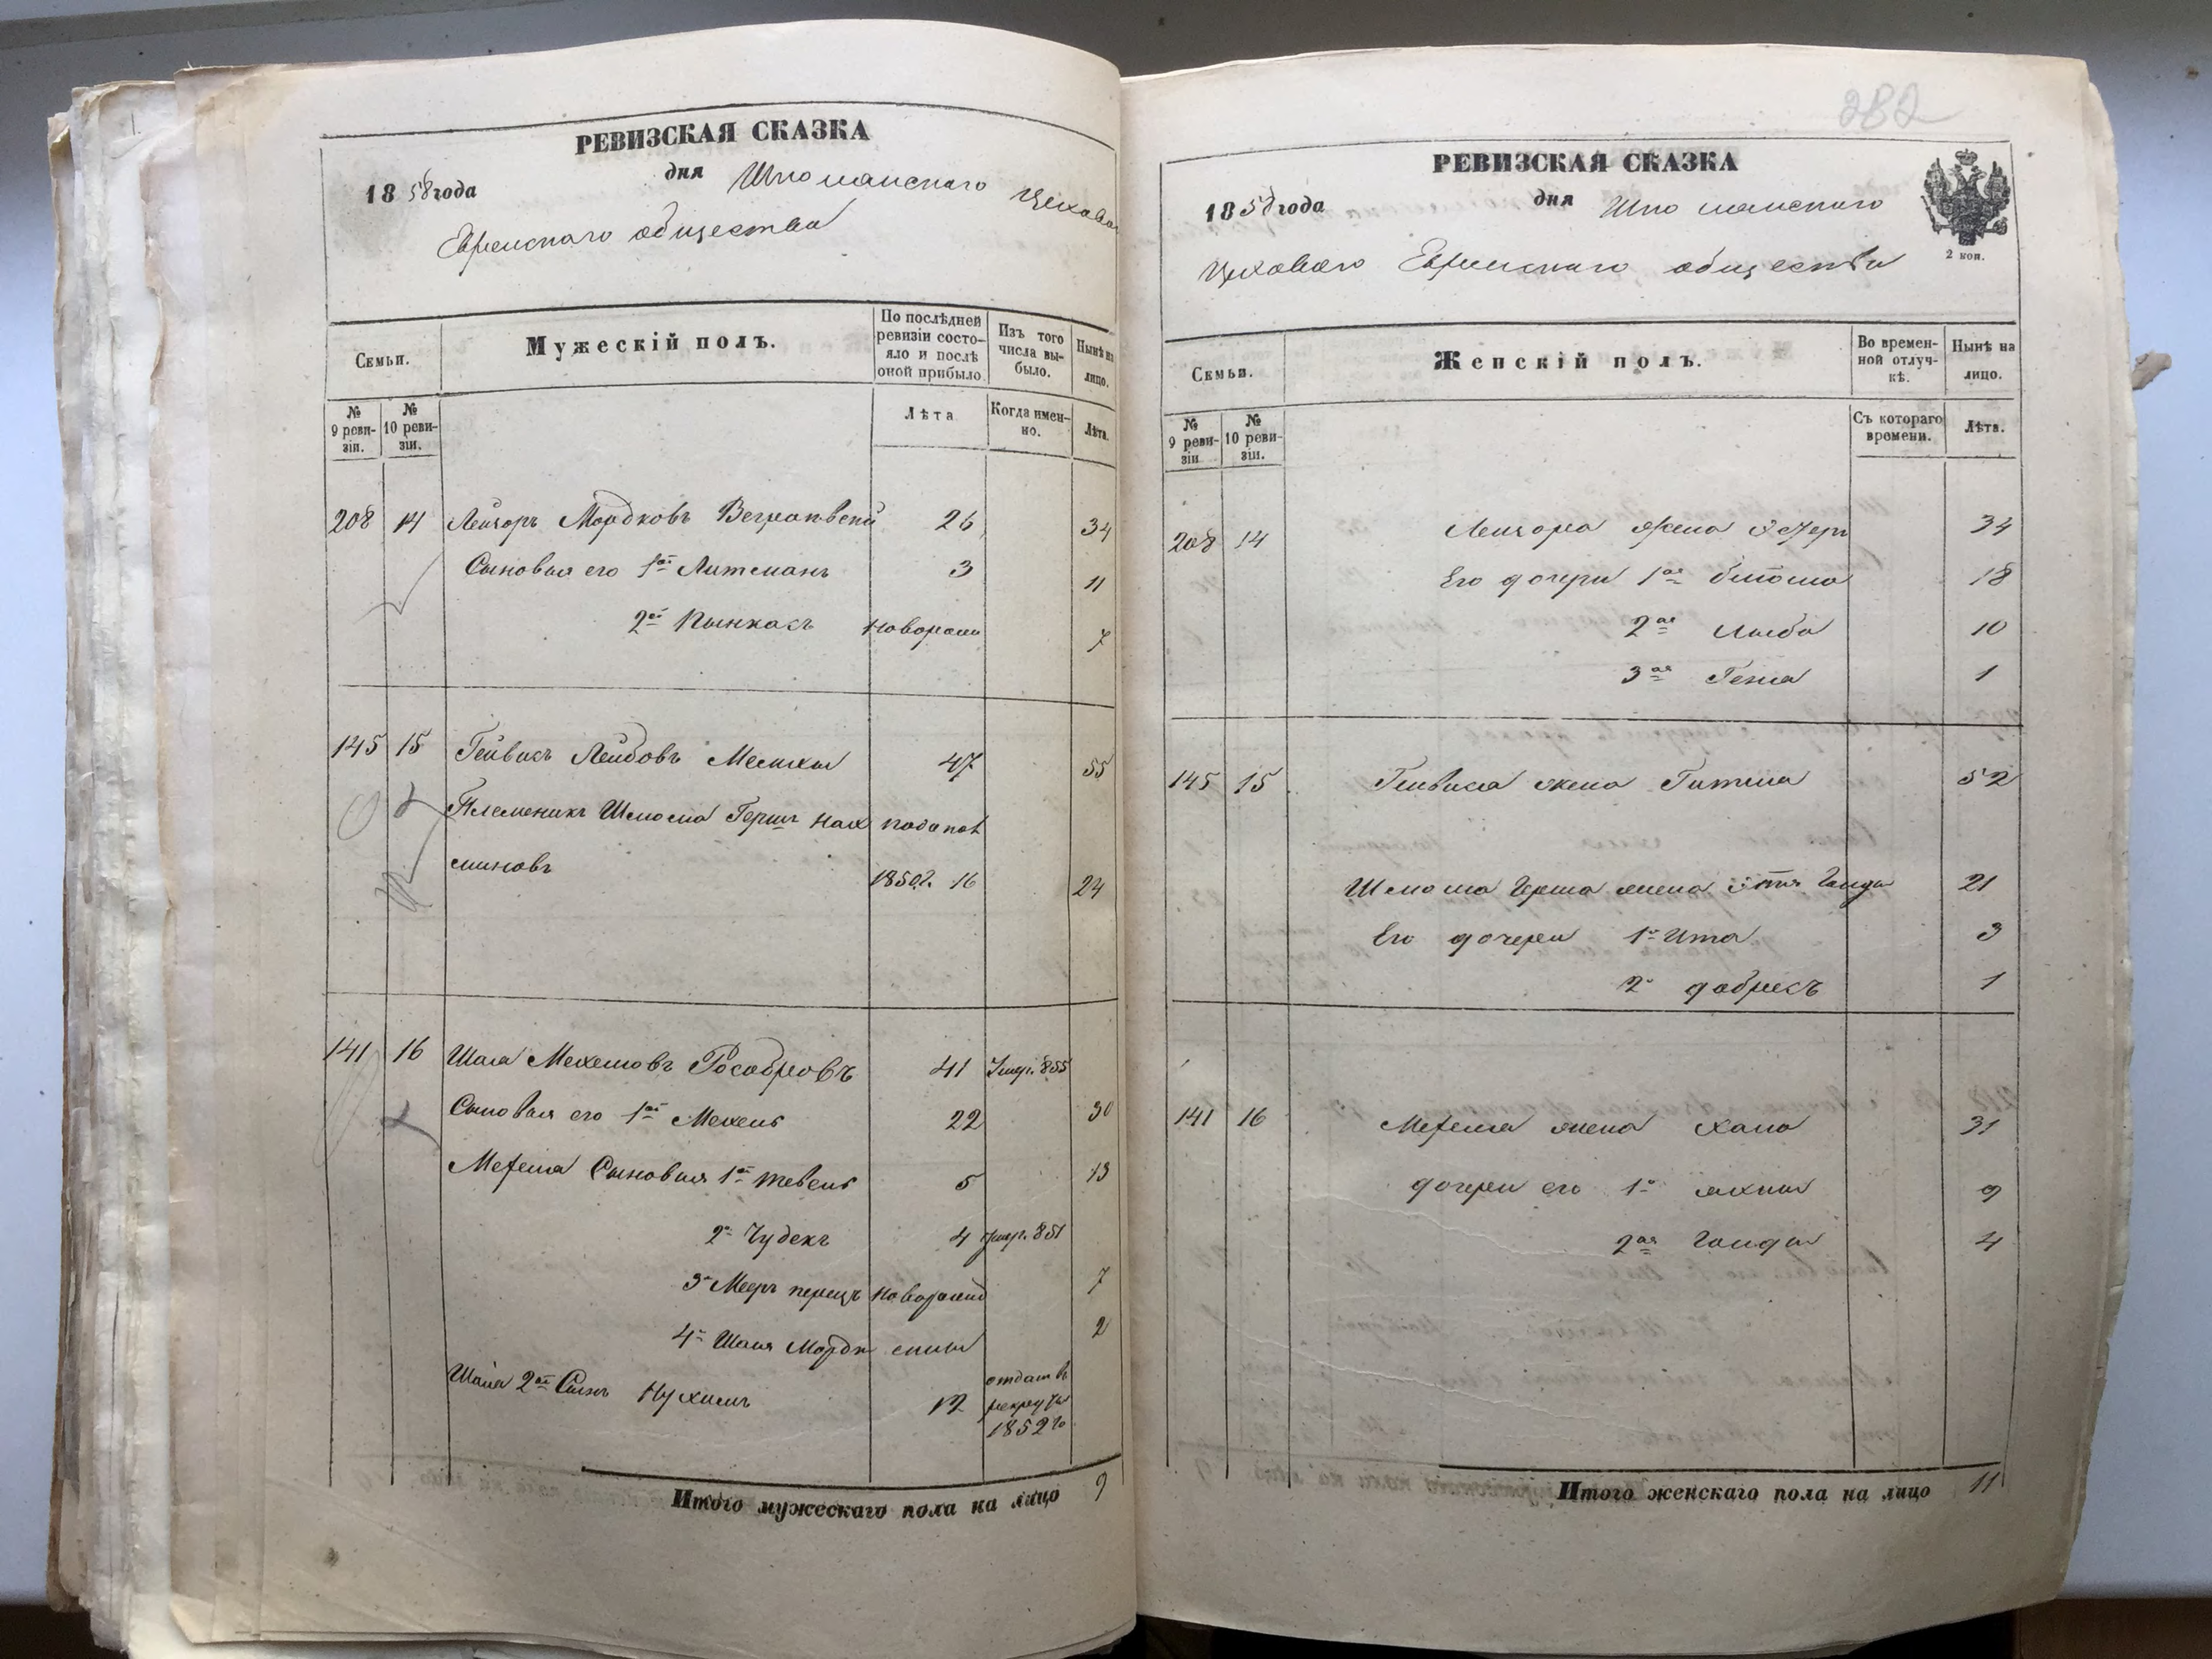 РЕВИЗСКАЯ СКАЗКА
1858 года дня Шполянскаго Цехова
Еврейскаго общества
Семьи.
Мужескій полъ.
По послѣдней ревизіи состояло и послѣ оной прибыло.
Изъ того числа выбыло.
Нынѣ на лицо.
№ 9 ревизіи.
№ 10 ревизіи.
Лѣта
Когда именно.
Лѣта.
208 14 Лейзоръ Мордковъ 26 34
Сыновья его 1ый Литманъ 3 11
2ой Пынкасъ новорожд 7
145 15 Гейвасъ Лейбовъ 47 55
Племеникъ Шмойла Герш Нах
миновъ 1850 г. 16 24
141 16 Шая Мехелювъ 41 Умер. 855
Сыновья его 1ый Мехель 22 30
Мехеля Сыновья 1й Тевель 5 13
2й Чудекъ 4 умер. 851
3й Меер перецъ новорожд 7
4й Шая Мордк 2
Шаи 2ой Сынъ Нухимъ 12 отдан в рекруты 1852 го
Итого мужескаго пола на лицо 9
282
РЕВИЗСКАЯ СКАЗКА
1858 года дня Шполянскаго
2 коп.
Цеховаго Еврейскаго общества
Семьи.
Женскій полъ.
Во временной отлучкѣ.
Нынѣ на лицо.
№ 9 ревизіи
№ 10 ревизіи.
Съ котораго времени.
Лѣта.
208 14 Лейзора жена Эстер 34
Его дочери 1ая 18
2ая 10
3ая Геня 1
145 15 Гейваса жена Гитля 52
Шмойла Герша жена 21
Его дочери 1я Ита 3
2я добрись 1
141 16 Мехеля жена Хана 31
дочери его 1я 9
2ая 4
Итого женскаго пола на лицо 11